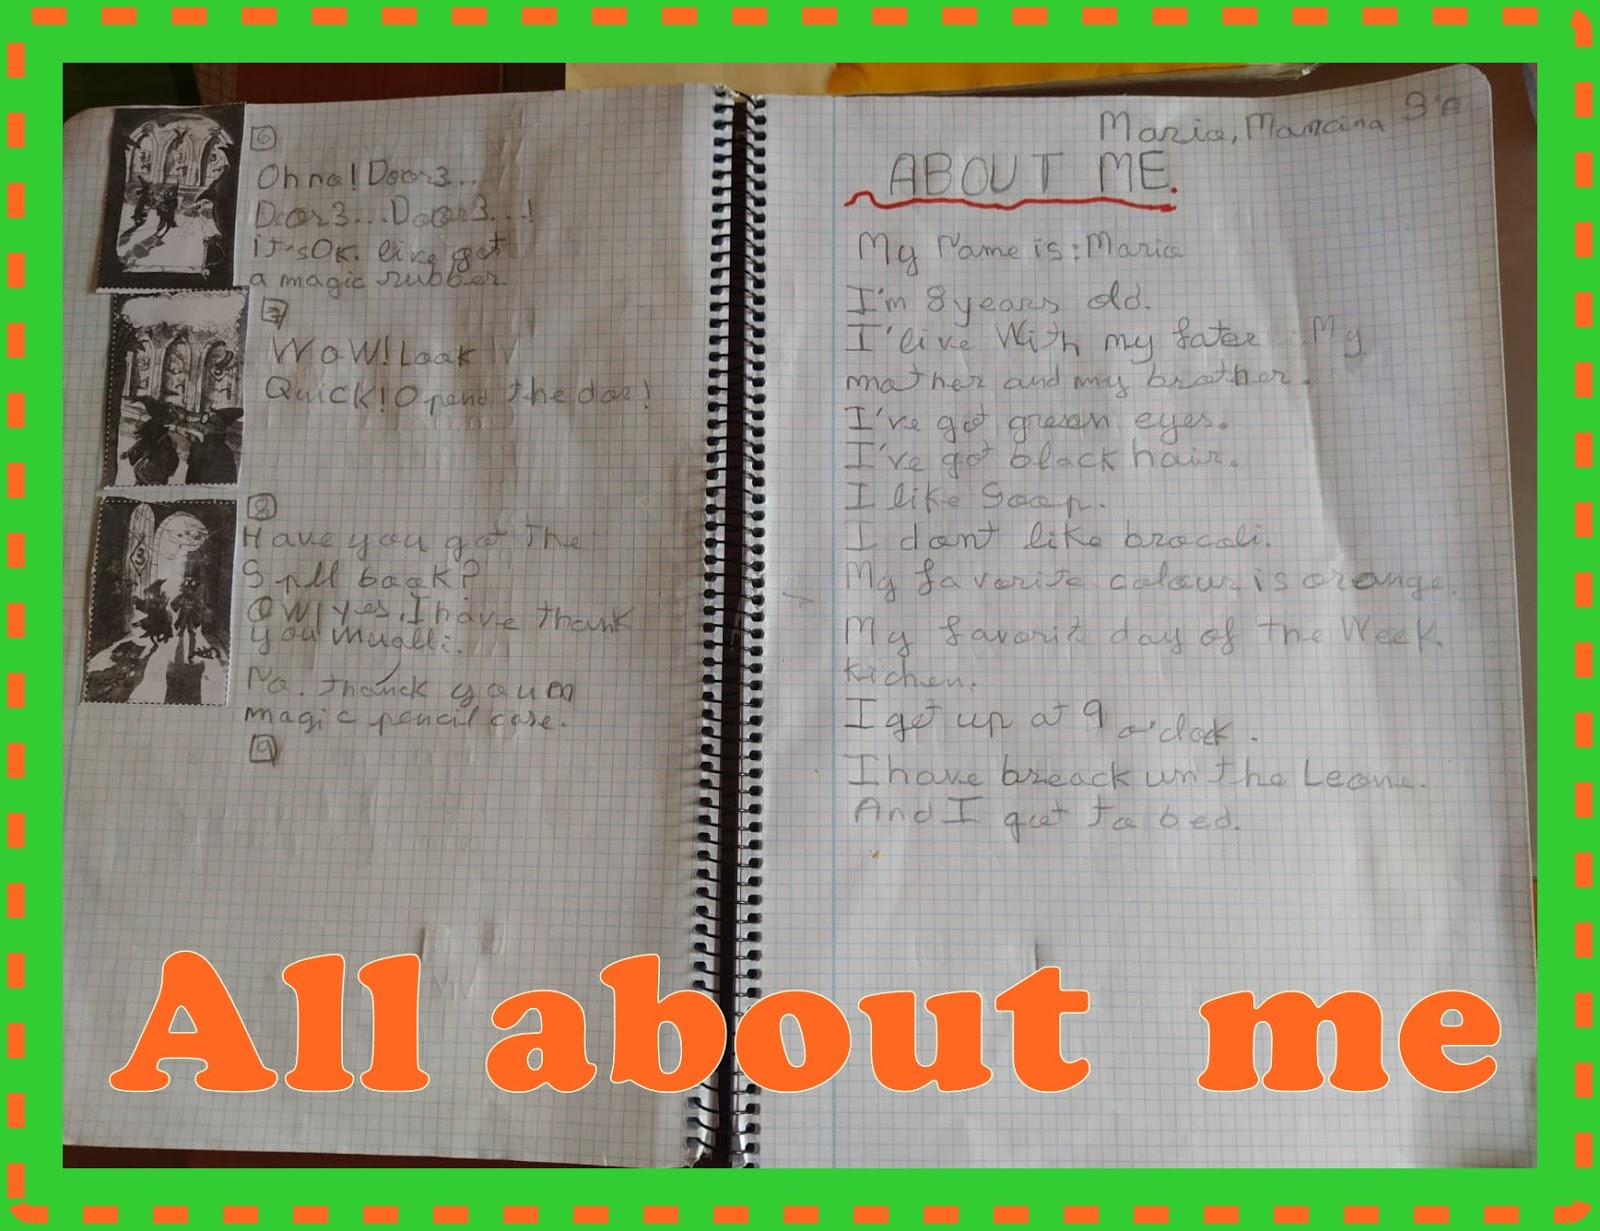 6
Oh no! Door 3...
Door 3...Door 3...!
it's OK. live got
a magic rubber.
7
WoW! Look
Quick! Opend the dor!
8
Have you got the
Spll book?
OW! yes, I have thank
you Mualli.
No. thanck you m
magic pencil case.
9
Maria, Mancina 3ºA
ABOUT ME.
My Name is: Maria
I'm 8 years old.
I'live With my fater My
mother and my brother.
I've got green eyes.
I've got black hair.
I like Soap.
I dont like brocoli.
My favorite colour is orange.
My favorit day of the Week
kichen.
I get up at 9 o'clock.
I have breack un the Leone.
And I got to bed.
All about me